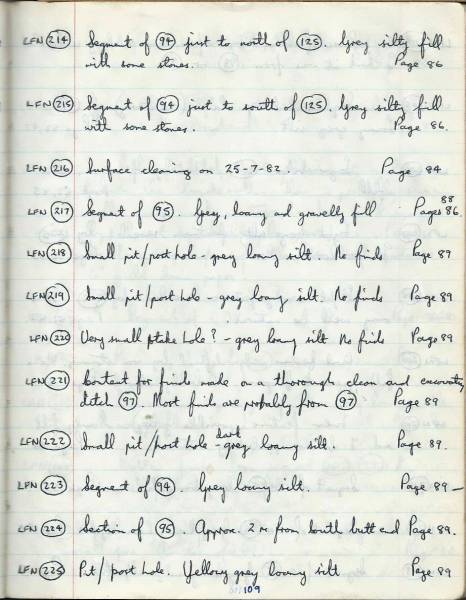 LFN 214 Segment of 94 just to north of 125. Grey silty fill
with some stones. Page 86
LFN 215 Segment of 94 just to south of 125. Grey silty fill
with some stones. Page 86.
LFN 216 Surface cleaning on 25-7-82. Page 84
LFN 217 Segment of 95. Grey, loamy and gravelly fill Pages 86. 88
LFN 218 Small pit/post hole - grey loamy silt. No finds Page 89
LFN 219 Small pit/post hole - grey loamy silt. No finds Page 89
LFN 220 Very small stake hole? - grey loamy silt No finds Page 89
LFN 221 Context for finds made on a thorough clean and
ditch 97. Most finds are probably from 97 Page 89
LFN 222 Small pit/post hole - dark grey loamy silt. Page 89.
LFN 223 Segment of 94. Grey loamy silt. Page 89 -
LFN 224 Section of 95. Approx. 2m from South butt end Page 89.
LFN 225 Pit/post hole. Yellowy grey loamy silt Page 89
109